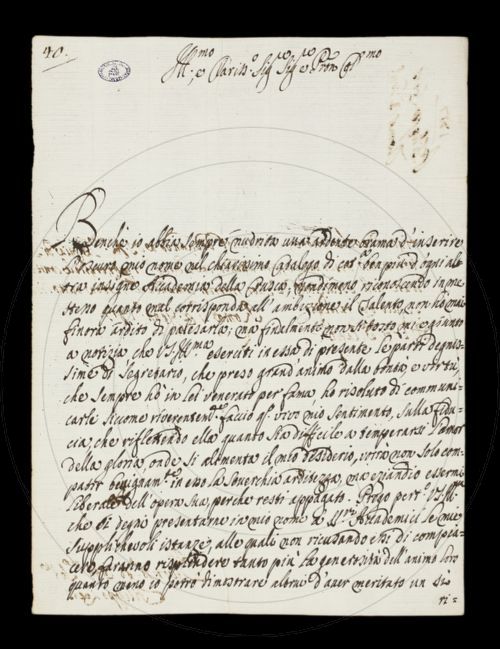 40.
Ill.mo, e
Benchè io abbia sempre nudrita una ardente brama d'inserire
l'oscuro mio nome nel chiarissimo Catalogo di cos. ben più d'ogni al=
tra insigne Accademia della Crusca, nondimeno riconoscendo in me
stesso quanto mal corrisponda all'ambizione il talento, non ho mai
finora ardito di palesarla; ma finalmente non sì tosto mi è giunto
a notizia che V.S. Ill.ma eserciti in essa di presente le parti degnis=
sime di Segretario, che preso grand'animo dalla bontà, e virtù,
che sempre hò in Lei venerate per fama, ho risoluto di communi=
carle siccome riverentem.te faccio q.o vivo mio sentimento, sulla fidu=
cia, che riflettendo ella quanto sia difficile a temperarsi l'amor
della gloria, onde si alimenta il mio desiderio, vorrà non solo com=
patir benignam.te in esso la soverchia arditezza, ma eziandio essermi
liberale dell'opera sua, perchè resti appagato. Prego per.o V.S. Ill.ma
che si degni presentare in mio nome a SS.ri Accademici le mie
supplichevoli istanze, alle quali non ricusando essi di compia=
cere faranno risplendere tanto più la generosità dell'animo loro
quanto meno io potrò dimostrare altrui d'aver meritato un sì
ri=